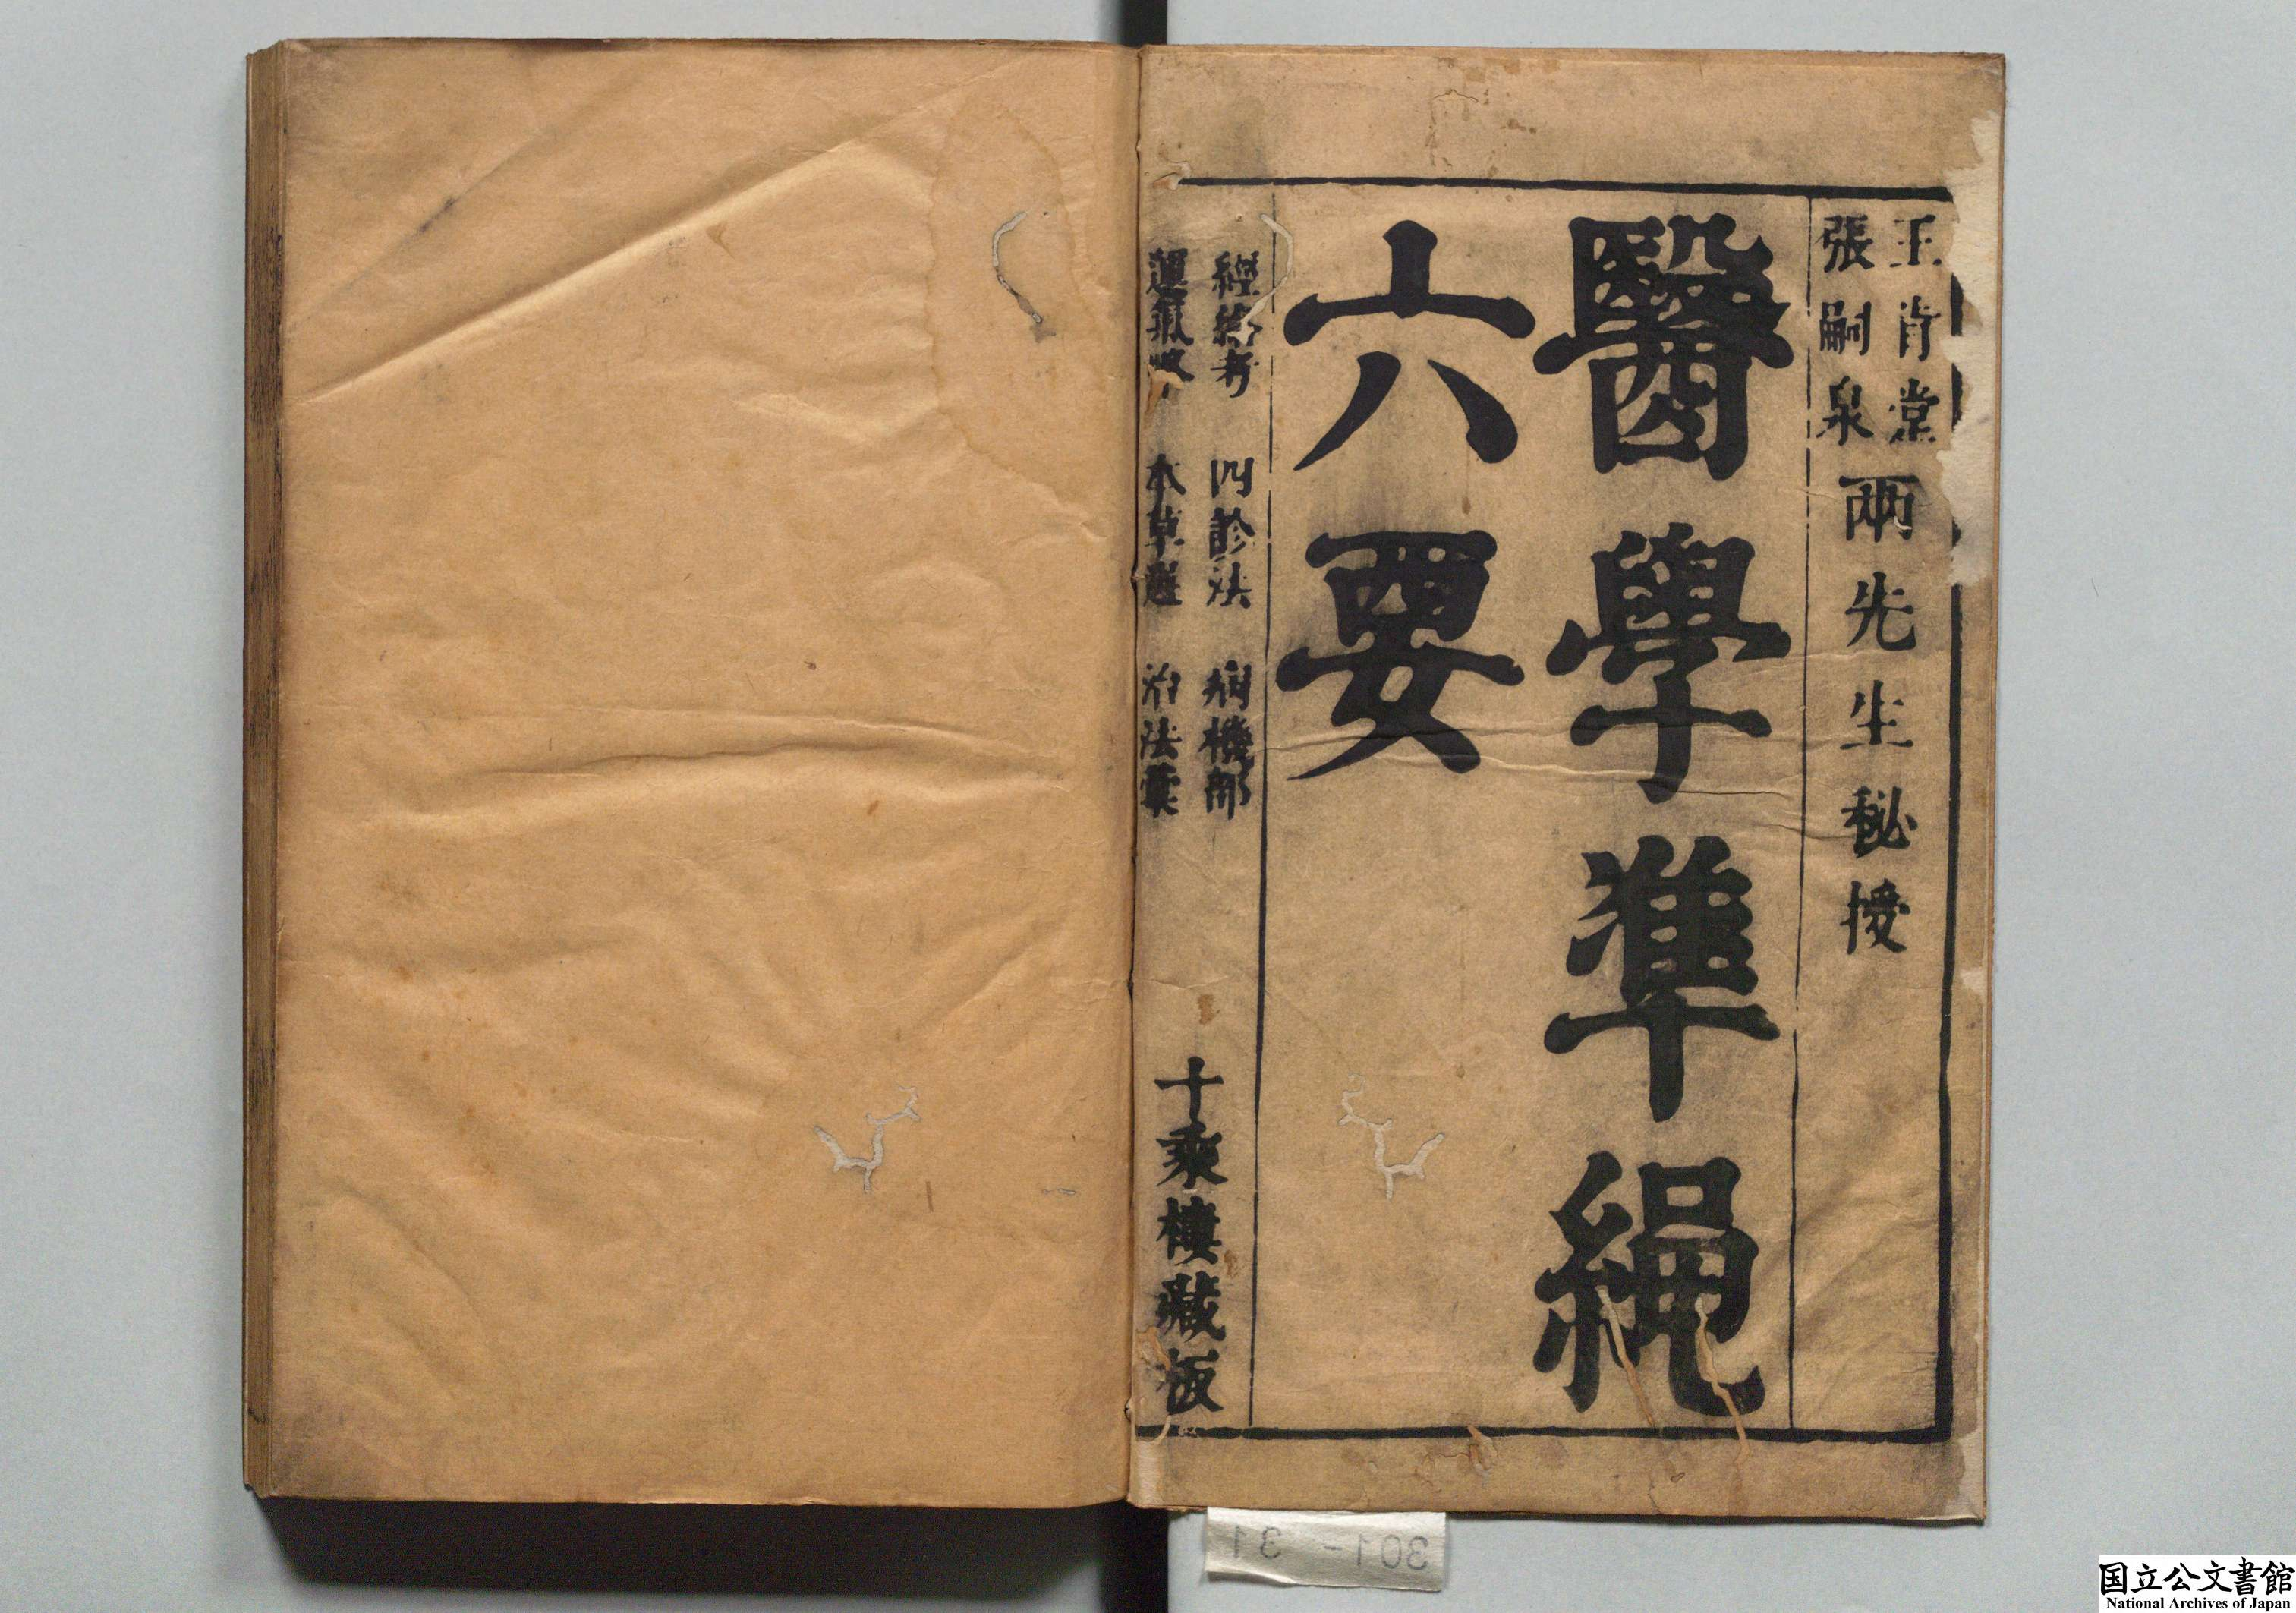 王肯堂
張嗣泉
兩先生秘授
醫學準繩
六要
經絡考 四診法 病機部
運氣畧 本草選 治法彙
十乘樓藏板
301-31
国立公文書館
National Archives of Japan